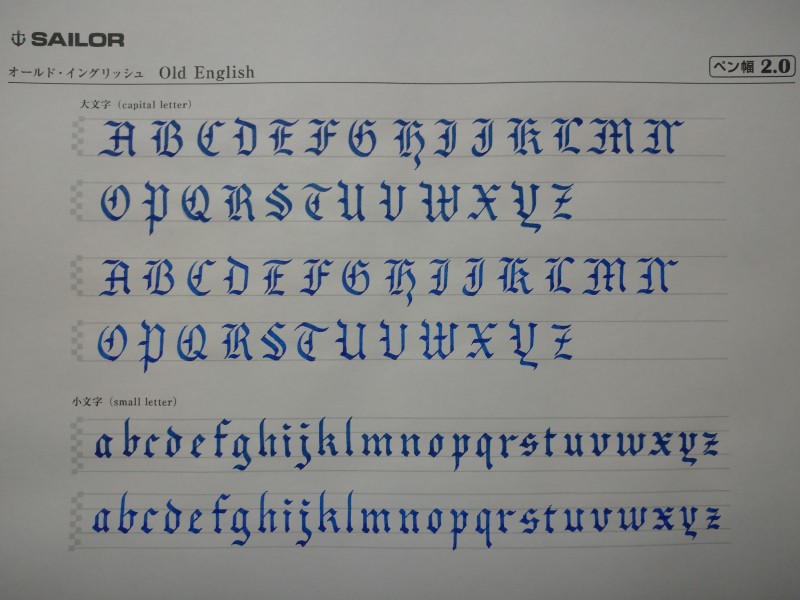 SAILOR
オールド・イングリッシュ Old English
ペン幅 2.0
大文字 (capital letter)
A B C D E F G H I J K L M N
O P Q R S T U V W X Y Z
A B C D E F G H I J K L M N
O P Q R S T U V W X Y Z
小文字 (small letter)
a b c d e f g h i j k l m n o p q r s t u v w x y z
a b c d e f g h i j k l m n o p q r s t u v w x y z